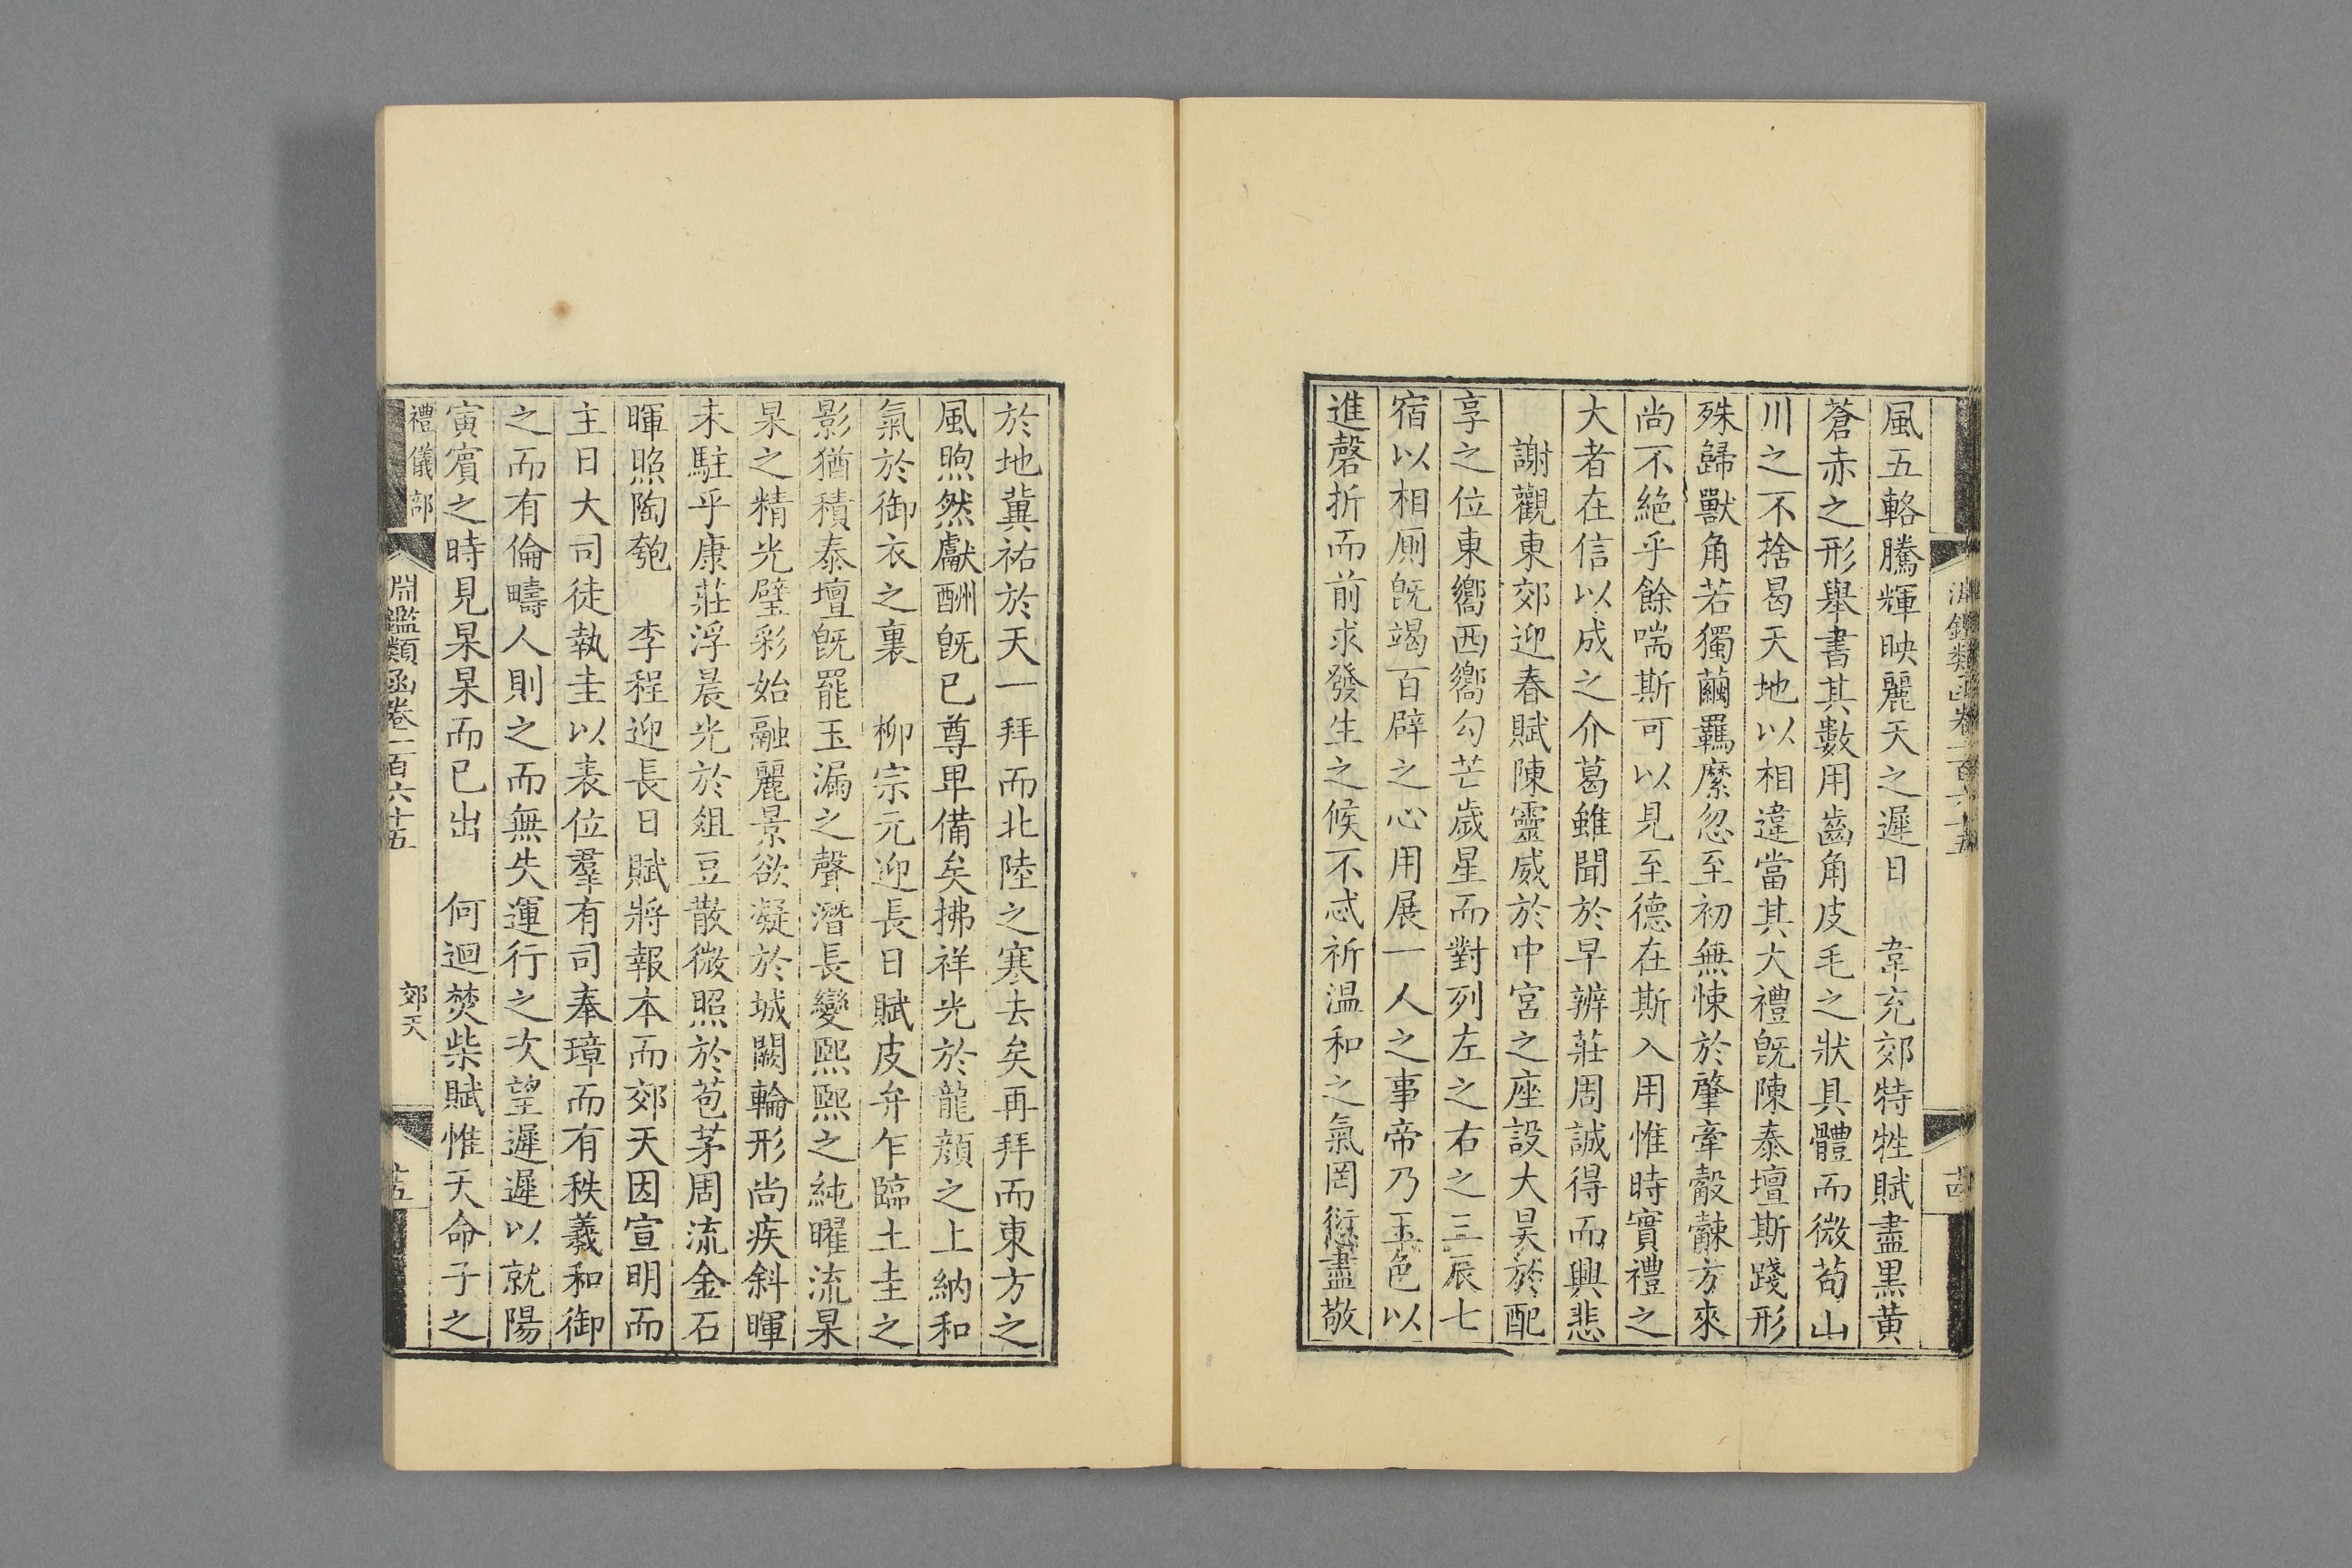 淵鑑類函卷一百六十五
風五輅騰輝映麗天之遲日　韋充郊特牲賦盡黒黄
蒼赤之形舉書其數用齒角皮毛之狀具體而微荀山
川之不捨曷天地以相違當其大禮旣陳泰壇斯踐形
殊歸獸角若獨繭羈縻忽至初無悚於肇牽觳觫方來
尚不絶乎餘喘斯可以見至德在斯入用惟時實禮之
大者在信以成之介葛雖聞於早辨莊周誠得而興悲
謝觀東郊迎春賦陳靈威於中宮之座設大昊於配
享之位東嚮西嚮勾芒歳星而對列左之右之三辰七
宿以相厠旣竭百辟之心用展一人之事帝乃玉色以
進磬折而前求發生之候不忒祈温和之氣罔愆盡敬
於地冀祐於天一拜而北陸之寒去矣再拜而東方之
風煦然獻酬旣已尊卑備矣拂祥光於龍顔之上納和
氣於御衣之裏　柳宗元迎長日賦皮弁乍臨土圭之
影猶積泰壇旣罷玉漏之聲潛長變熙熙之純曜流杲
杲之精光璧彩始融麗景欲凝於城闕輪形尚疾斜暉
未駐乎康莊浮晨光於俎豆散微照於苞茅周流金石
暉照陶匏　李程迎長日賦將報本而郊天因宣明而
主日大司徒執圭以表位羣有司奉璋而有秩羲和御
之而有倫疇人則之而無失運行之次望遲遲以就陽
寅賓之時見杲杲而已出　何迴焚柴賦惟天命子之
禮儀部
淵鑑類函卷一百六十五
郊天